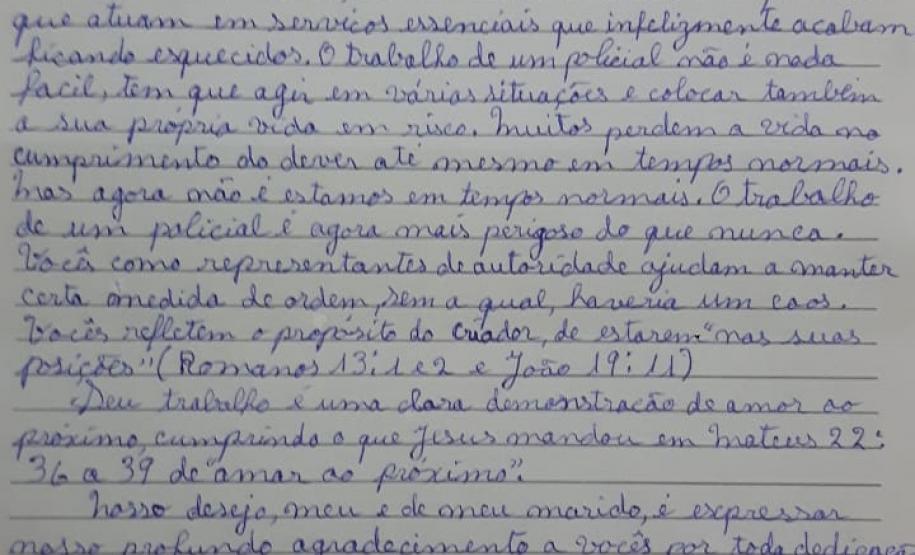 que atuam em serviços essenciais que infelizmente acabam
ficando esquecidos. O trabalho de um policial não é nada
facil, tem que agir em várias situações e colocar também
a sua própria vida em risco. Muitos perdem a vida no
cumprimento do dever até mesmo em tempos normais.
Mas agora não é estamos em tempos normais. O trabalho
de um policial é agora mais perigoso do que nunca.
Vocês como representantes de autoridade ajudam a manter
certa medida de ordem, sem a qual, haveria um caos.
Vocês refletem o propósito do Criador, de estarem "nas suas
posições" (Romanos 13:1 e 2 e João 19:11)
Seu trabalho é uma clara demonstração de amor ao
próximo, cumprindo o que Jesus mandou em Mateus 22:
36 a 39 de "amar ao próximo".
Nosso desejo, meu e de meu marido, é expressar
nosso profundo agradecimento a vocês por toda dedicação